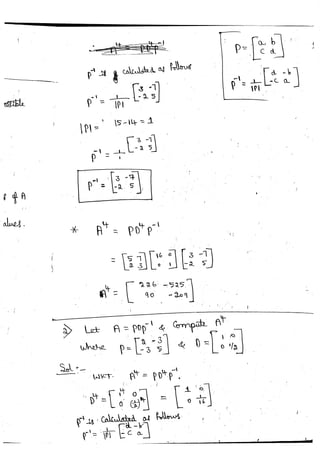 A⁴ = PD⁴P⁻¹
P = [a b; c d]
P⁻¹ = 1/|P| [d -b; -c a]
P⁻¹ is calculated as follows
P⁻¹ = 1/|P| [3 -7; -2 5]
|P| = 15-14 = 1
P⁻¹ = 1/1 [3 -7; -2 5]
P⁻¹ = [3 -7; -2 5]
of A
alues.
* A⁴ = PD⁴P⁻¹
= [5 7; 2 3] [16 0; 0 1] [3 -7; -2 5]
A⁴ = [226 -525; 90 -209]
2) Let A = PDP⁻¹ & Compute A⁴
where P = [2 -3; -3 5] & D = [1 0; 0 1/2]
Sol:-
WKT. A⁴ = PD⁴P⁻¹.
D⁴ = [1⁴ 0; 0 (½)⁴] = [1 0; 0 1/16]
P⁻¹ is calculated as follows
P⁻¹ = 1/|P| [d -b; -c a]